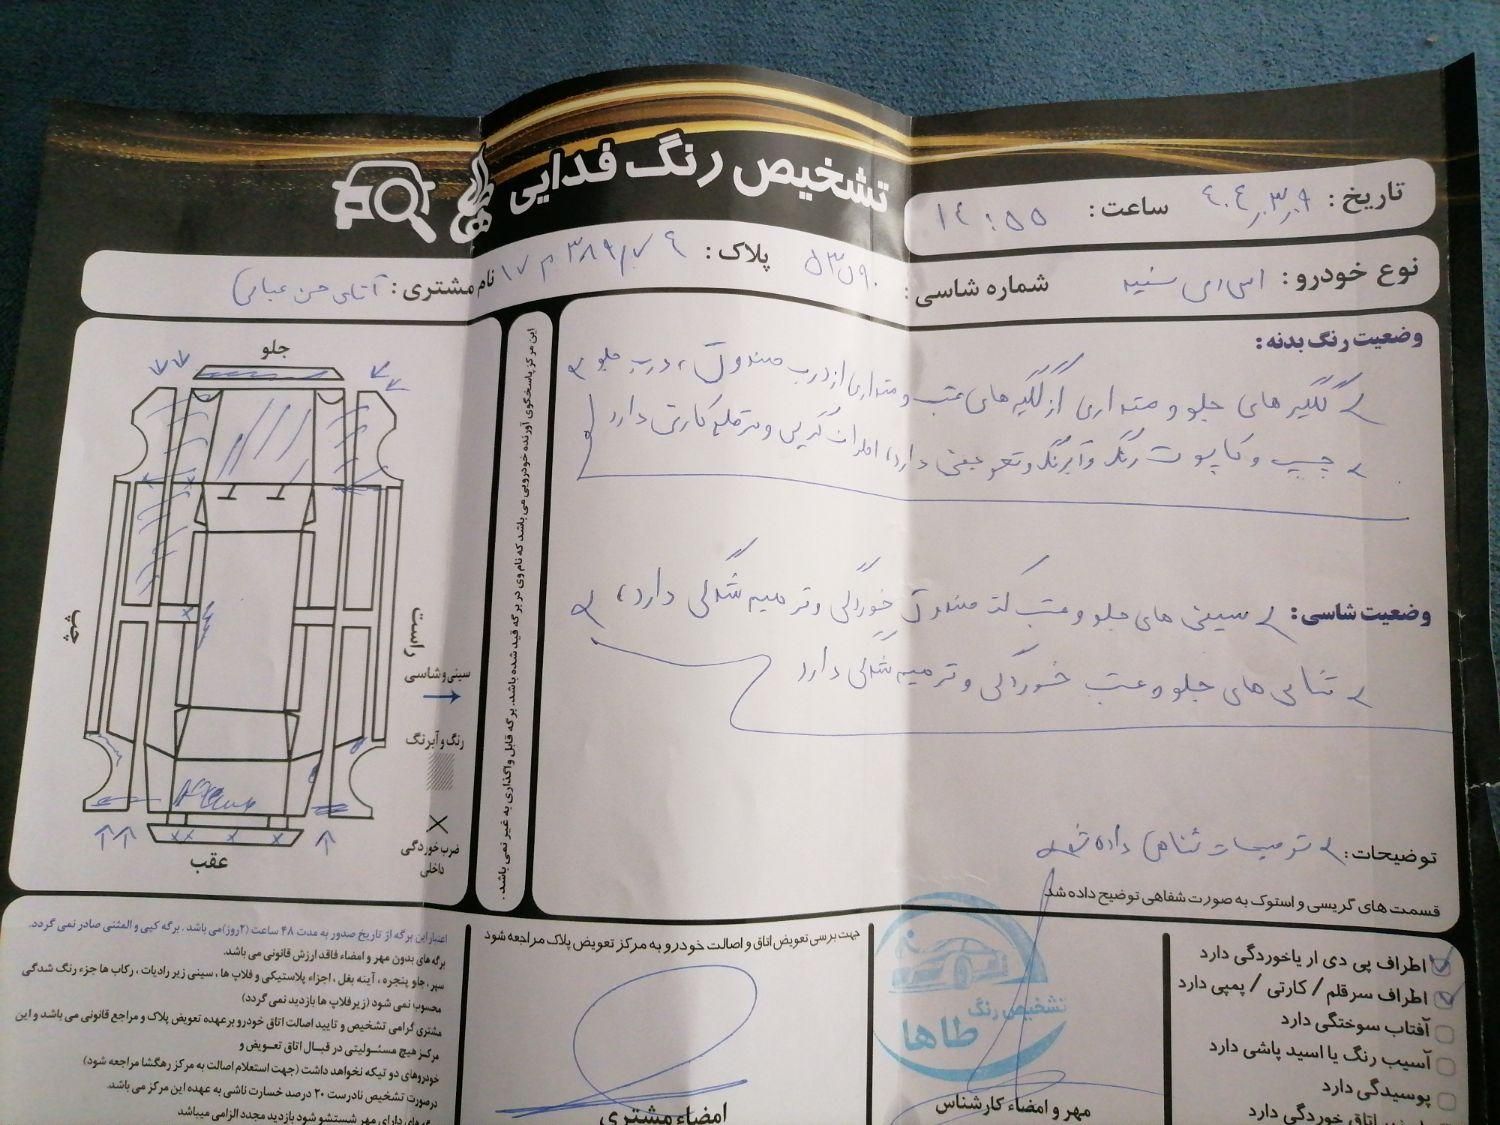 تشخیص رنگ فدایی
تاریخ : ۴۰۴,۳,۹ ساعت : ۱۲:۵۵
نوع خودرو : شماره شاسی : پلاک : نام مشتری :
وضعیت رنگ بدنه :
گلگیر های جلو و مقداری از گلگیر های عقب و مقداری از درب صندوق ، درب جلو
چپ و کاپوت رنگ و آبرنگ و تعویضی دارد، اطراف گریس و سرقلم کارتی دارد
وضعیت شاسی : سینی های جلو و عقب کف صندوق خوردگی و ترمیم شدگی دارد،
شاسی های جلو و عقب خوردگی و ترمیم شدگی دارد
توضیحات : توضیحات شفاهی داده شد
قسمت های گریسی و استوک به صورت شفاهی توضیح داده شد
این مرکز پاسخگوی آورنده خودرویی می باشد که نام وی در برگه قید شده باشد. برگه قابل واگذاری به غیر نمی باشد.
جلو
چپ
راست
سینی و شاسی
رنگ و آبرنگ
ضرب خوردگی
داخلی
عقب
اطراف پی دی ار یاخوردگی دارد
اطراف سرقلم / کارتی / پمپی دارد
آفتاب سوختگی دارد
آسیب رنگ یا اسید پاشی دارد
پوسیدگی دارد
اتاق خوردگی دارد
تشخیص رنگ
طاها
مهر و امضاء کارشناس
جهت برسی تعویض اتاق و اصالت خودرو به مرکز تعویض پلاک مراجعه شود
امضاء مشتری
اعتبار این برگه از تاریخ صدور به مدت ۴۸ ساعت (۲روز)می باشد . برگه کپی و المثنی صادر نمی گردد.
برگه های بدون مهر و امضاء فاقد ارزش قانونی می باشد.
سپر ، جلو پنجره ، آینه بغل ، اجزاء پلاستیکی و فلاپ ها ، سینی زیر رادیات ، رکاب ها جزء رنگ شدگی
محسوب نمی شود (زیر فلاپ ها بازدید نمی گردد)
مشتری گرامی تشخیص و تایید اصالت اتاق خودرو برعهده تعویض پلاک و مراجع قانونی می باشد و این
مرکز هیچ مسئولیتی در قبال اتاق تعویض و
خودروهای دو تیکه نخواهد داشت (جهت استعلام اصالت به مرکز رهگشا مراجعه شود)
درصورت تشخیص نادرست ۲۰ درصد خسارت ناشی به عهده این مرکز می باشد.
های دارای مهر شستشو شود بازدید مجدد الزامی میباشد